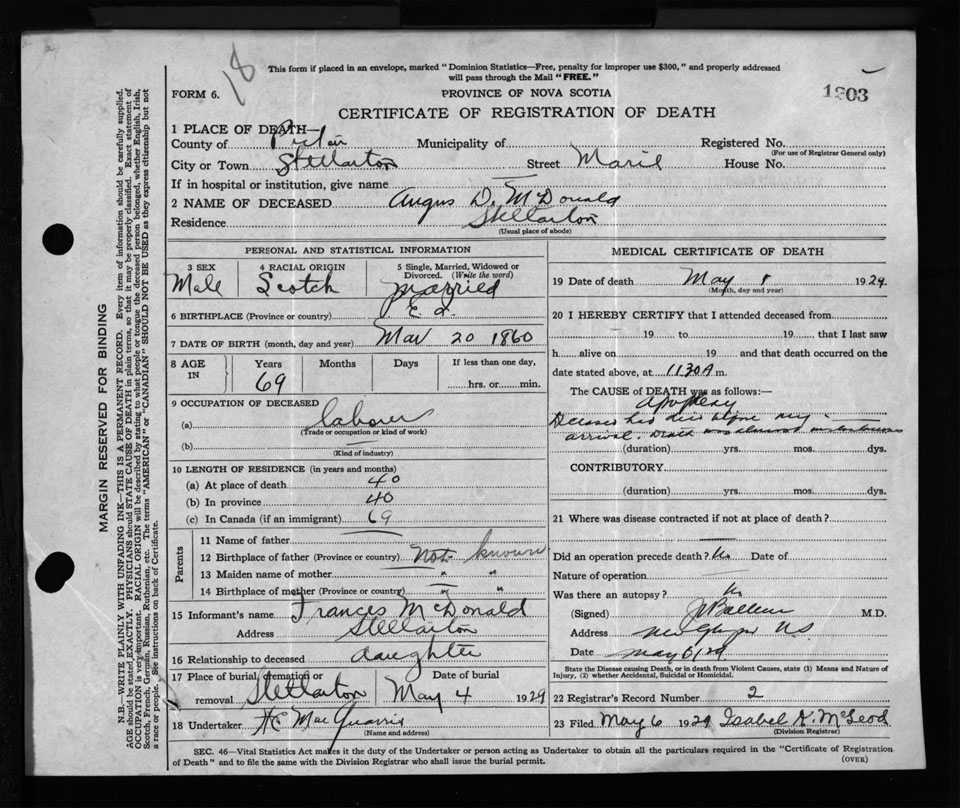 18
This form if placed in an envelope, marked "Dominion Statistics—Free, penalty for improper use $300," and properly addressed
will pass through the Mail "FREE."
FORM 6.
PROVINCE OF NOVA SCOTIA
1303
CERTIFICATE OF REGISTRATION OF DEATH
1 PLACE OF DEATH—
County of Pictou Municipality of Registered No.
(For use of Registrar General only)
City or Town Stellarton Street Marie House No.
If in hospital or institution, give name —
2 NAME OF DECEASED Angus D. McDonald
Residence Stellarton
(Usual place of abode)
PERSONAL AND STATISTICAL INFORMATION
3 SEX
Male
4 RACIAL ORIGIN
Scotch
5 Single, Married, Widowed or
Divorced. (Write the word)
Married
6 BIRTHPLACE (Province or country)
7 DATE OF BIRTH (month, day and year) Mar 20 1860
8 AGE
IN
Years
69
Months
Days
If less than one day,
hrs. or min.
9 OCCUPATION OF DECEASED
(a) labor
(Trade or occupation or kind of work)
(b) —
(Kind of industry)
10 LENGTH OF RESIDENCE (in years and months)
(a) At place of death 40
(b) In province 40
(c) In Canada (if an immigrant) 69
Parents
11 Name of father —
12 Birthplace of father (Province or country) Not known
13 Maiden name of mother " "
14 Birthplace of mother (Province or country) " "
15 Informant's name Frances McDonald
Address Stellarton
16 Relationship to deceased daughter
17 Place of burial, cremation or
removal Stellarton
Date of burial
May 4 1929
18 Undertaker MacQuarrie
(Name and address)
MEDICAL CERTIFICATE OF DEATH
19 Date of death May 1 1929
(Month, day and year)
20 I HEREBY CERTIFY that I attended deceased from
19 to 19 , that I last saw
h alive on 19 and that death occurred on the
date stated above, at 1130A m.
The CAUSE of DEATH was as follows:—
apoplexy
my
arrival. Death was almost
(duration) yrs. mos. dys.
CONTRIBUTORY
(duration) yrs. mos. dys.
21 Where was disease contracted if not at place of death?
Did an operation precede death? No Date of
Nature of operation —
Was there an autopsy? No
(Signed) M.D.
Address New Glasgow N.S.
Date May 6/29
State the Disease causing Death, or in death from Violent Causes, state (1) Means and Nature of
Injury, (2) whether Accidental, Suicidal or Homicidal.
22 Registrar's Record Number 2
23 Filed May 6 1929 Isabel K. McLeod
(Division Registrar)
SEC. 46—Vital Statistics Act makes it the duty of the Undertaker or person acting as Undertaker to obtain all the particulars required in the "Certificate of Registration
of Death" and to file the same with the Division Registrar who shall issue the burial permit.
(OVER)
MARGIN RESERVED FOR BINDING
N.B.—WRITE PLAINLY WITH UNFADING INK—THIS IS A PERMANENT RECORD. Every item of information should be carefully supplied.
AGE should be stated EXACTLY. PHYSICIANS should STATE CAUSE OF DEATH in plain terms, so that it may be properly classified. Exact statement of
OCCUPATION is very important. RACIAL ORIGIN will be described by stating to what people or tongue the deceased person belonged, whether English, Irish,
Scotch, French, German, Russian, Ruthenian, etc. The terms "AMERICAN" or "CANADIAN" SHOULD NOT BE USED as they express citizenship but not
a race or people. See instructions on back of Certificate.